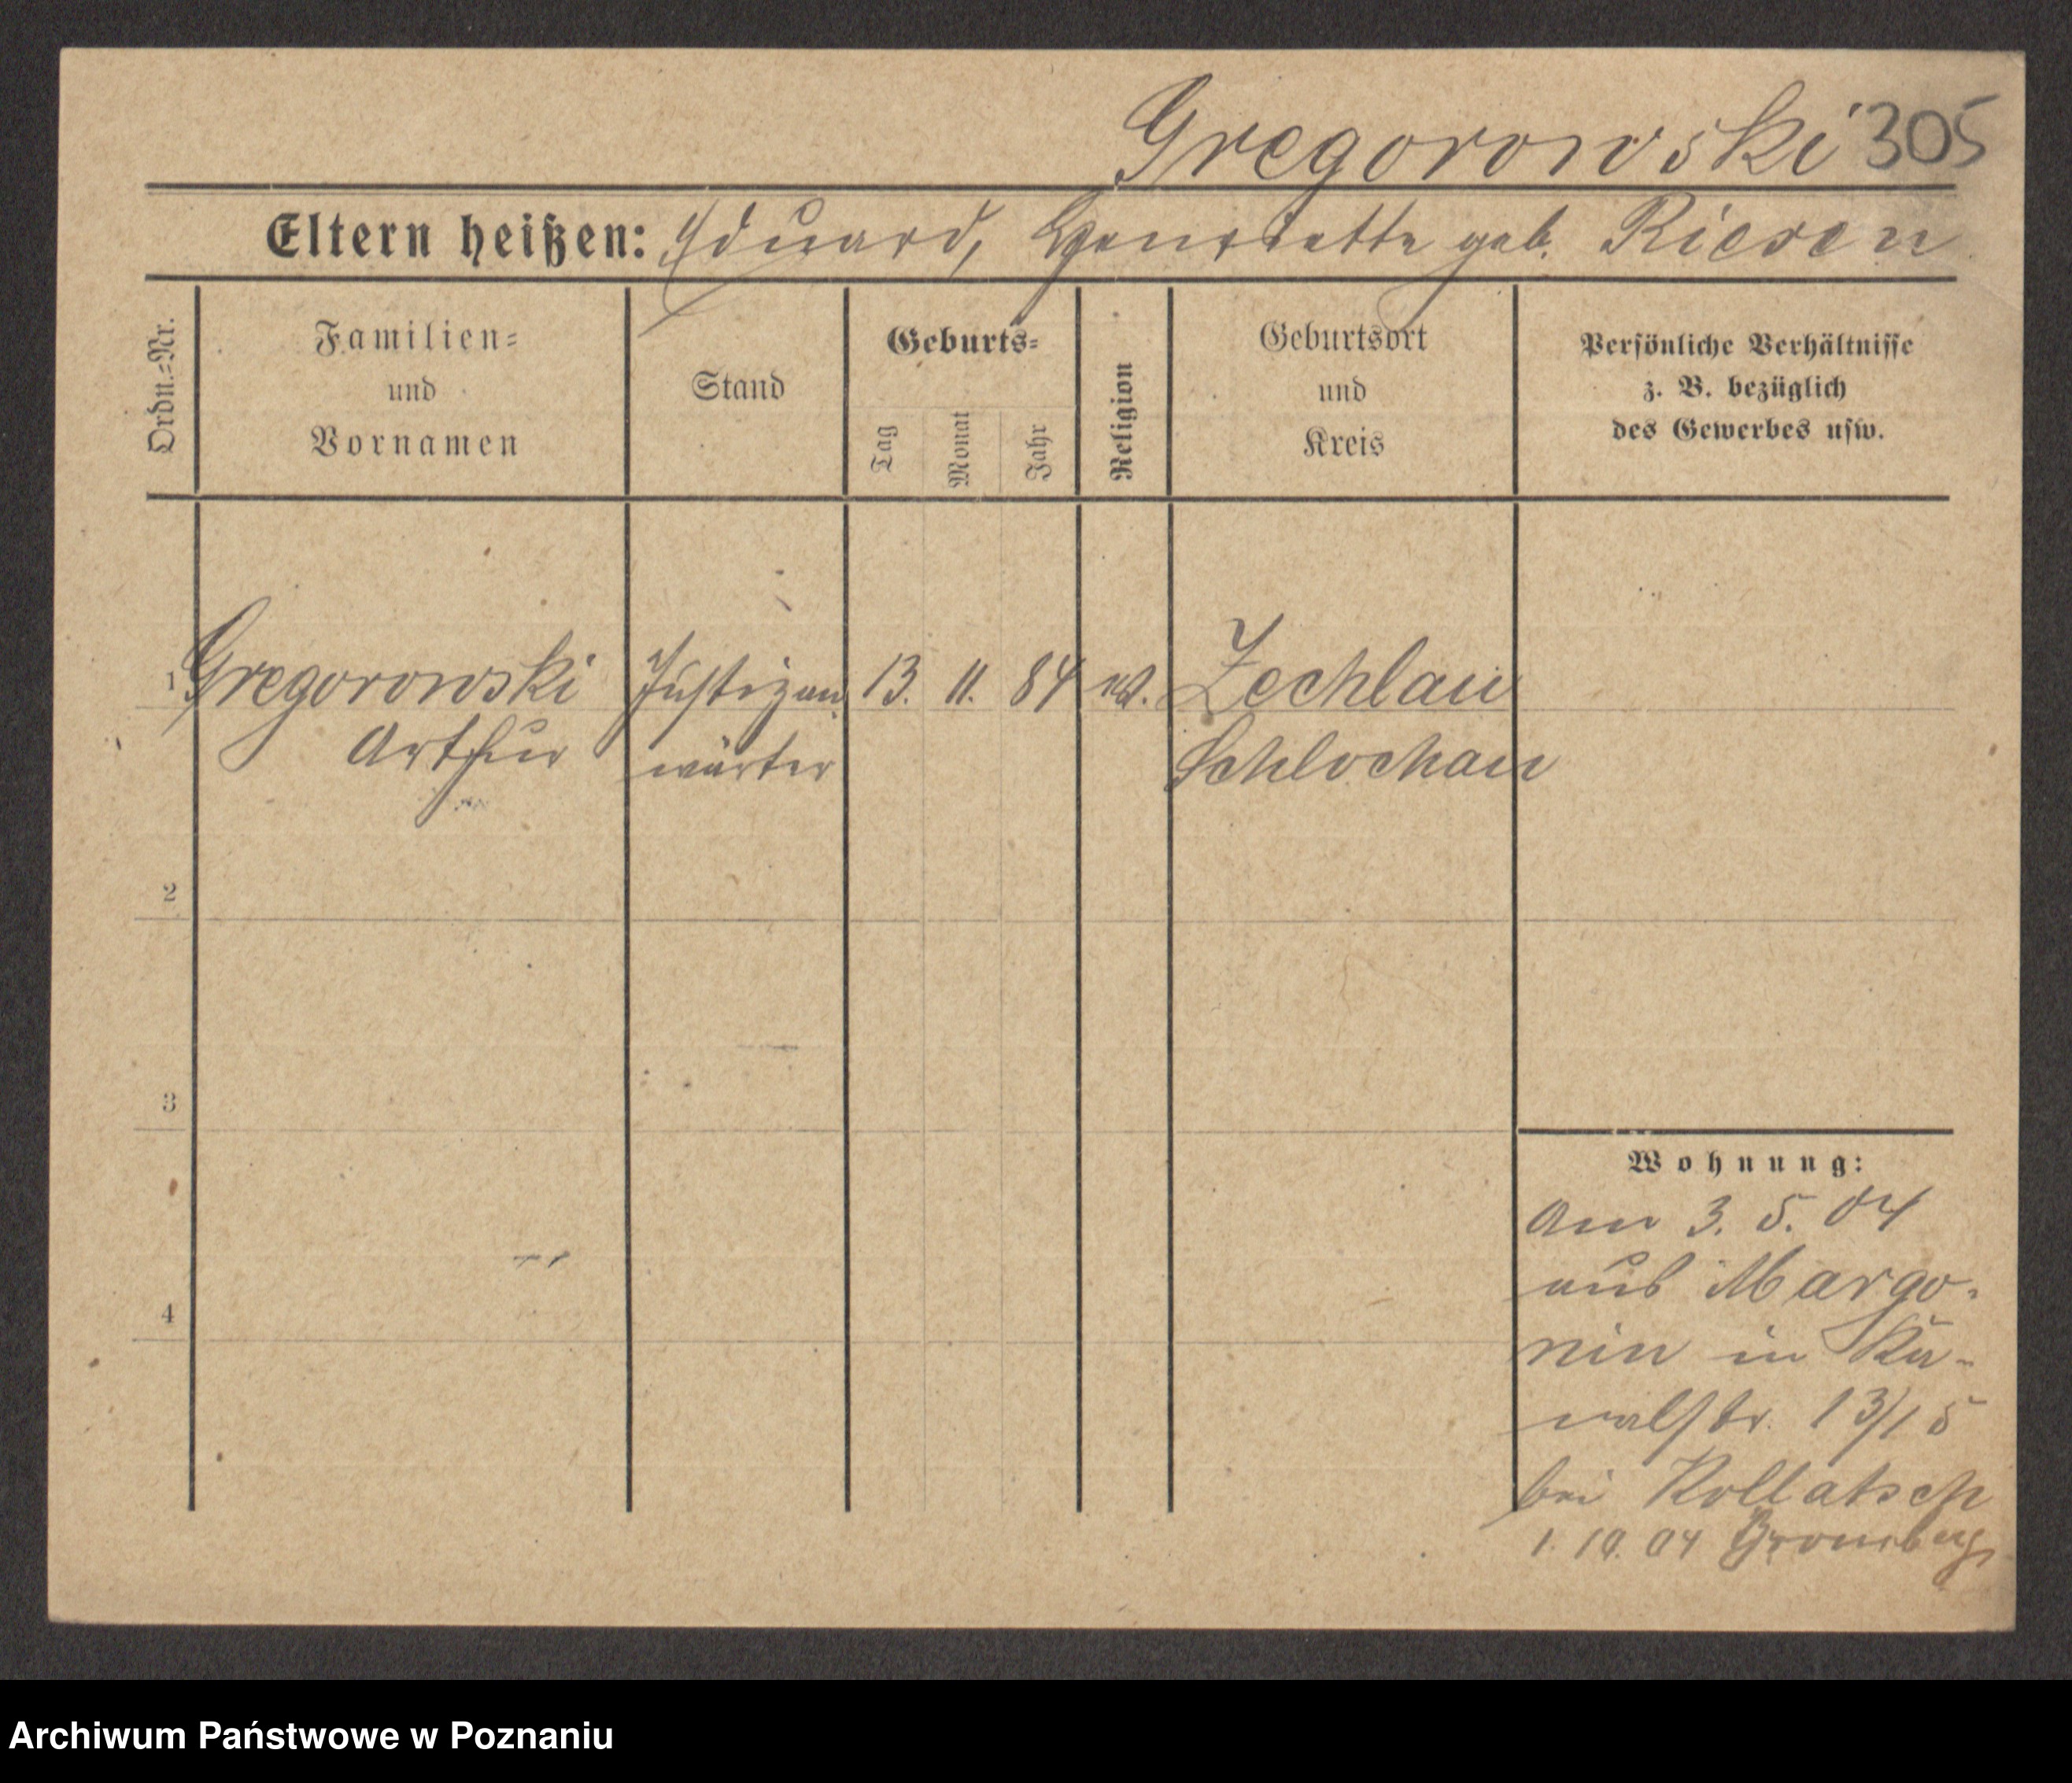 Gregorowski 305
Eltern heißen: Eduard, Henriette geb. Riesen
Ordn.=Nr.
Familien=
und
Vornamen
Stand
Geburts=
Tag
Monat
Jahr
Religion
Geburtsort
und
Kreis
Persönliche Verhältnisse
z. B. bezüglich
des Gewerbes usw.
1 Gregorowski Justizan 13. 11. 84 ev. Zechlau
Arthur wärter Schlochau
2
3
4
Wohnung:
Am 3. 5. 04
aus Margo-
nin in Ka-
nalstr. 13/15
bei Kollatsch
1. 10. 04 Bromberg